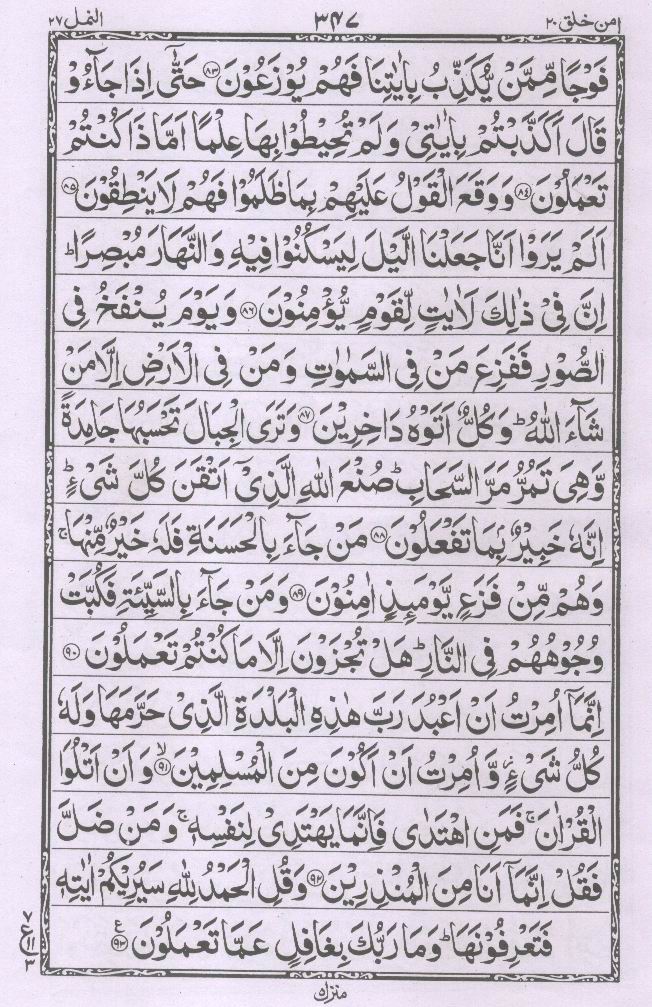 امن خلق ٢٠ ٣٤٧ النمل ٢٧
فَوۡجًا مِّمَّنۡ يُّكَذِّبُ بِاٰيٰتِنَا فَهُمۡ يُوۡزَعُوۡنَ ﴿٨٣﴾ حَتّٰٓى اِذَا جَآءُوۡ
قَالَ اَكَذَّبۡتُمۡ بِاٰيٰتِىۡ وَلَمۡ تُحِيۡطُوۡا بِهَا عِلۡمًا اَمَّا ذَا كُنۡتُمۡ
تَعۡمَلُوۡنَ ﴿٨٤﴾ وَوَقَعَ الۡقَوۡلُ عَلَيۡهِمۡ بِمَا ظَلَمُوۡا فَهُمۡ لَا يَنۡطِقُوۡنَ ﴿٨٥﴾
اَلَمۡ يَرَوۡا اَنَّا جَعَلۡنَا الَّيۡلَ لِيَسۡكُنُوۡا فِيۡهِ وَالنَّهَارَ مُبۡصِرًا ؕ
اِنَّ فِىۡ ذٰلِكَ لَاٰيٰتٍ لِّقَوۡمٍ يُّؤۡمِنُوۡنَ ﴿٨٦﴾ وَيَوۡمَ يُنۡفَخُ فِى
الصُّوۡرِ فَفَزِعَ مَنۡ فِى السَّمٰوٰتِ وَمَنۡ فِى الۡاَرۡضِ اِلَّا مَنۡ
شَآءَ اللّٰهُ ؕ وَكُلٌّ اَتَوۡهُ دَاخِرِيۡنَ ﴿٨٧﴾ وَتَرَى الۡجِبَالَ تَحۡسَبُهَا جَامِدَةً
وَّهِىَ تَمُرُّ مَرَّ السَّحَابِ ؕ صُنۡعَ اللّٰهِ الَّذِىۡۤ اَتۡقَنَ كُلَّ شَىۡءٍ ؕ
اِنَّهٗ خَبِيۡرٌۢ بِمَا تَفۡعَلُوۡنَ ﴿٨٨﴾ مَنۡ جَآءَ بِالۡحَسَنَةِ فَلَهٗ خَيۡرٌ مِّنۡهَا ۚ
وَهُمۡ مِّنۡ فَزَعٍ يَّوۡمَٮِٕذٍ اٰمِنُوۡنَ ﴿٨٩﴾ وَمَنۡ جَآءَ بِالسَّيِّئَةِ فَكُبَّتۡ
وُجُوۡهُهُمۡ فِى النَّارِ ؕ هَلۡ تُجۡزَوۡنَ اِلَّا مَا كُنۡتُمۡ تَعۡمَلُوۡنَ ﴿٩٠﴾
اِنَّمَاۤ اُمِرۡتُ اَنۡ اَعۡبُدَ رَبَّ هٰذِهِ الۡبَلۡدَةِ الَّذِىۡ حَرَّمَهَا وَلَهٗ
كُلُّ شَىۡءٍ وَّاُمِرۡتُ اَنۡ اَكُوۡنَ مِنَ الۡمُسۡلِمِيۡنَ ۙ﴿٩١﴾ وَاَنۡ اَتۡلُوَا
الۡقُرۡاٰنَ ۚ فَمَنِ اهۡتَدٰى فَاِنَّمَا يَهۡتَدِىۡ لِنَفۡسِهٖ ۚ وَمَنۡ ضَلَّ
فَقُلۡ اِنَّمَاۤ اَنَا مِنَ الۡمُنۡذِرِيۡنَ ﴿٩٢﴾ وَقُلِ الۡحَمۡدُ لِلّٰهِ سَيُرِيۡكُمۡ اٰيٰتِهٖ
فَتَعۡرِفُوۡنَهَا ؕ وَمَا رَبُّكَ بِغَافِلٍ عَمَّا تَعۡمَلُوۡنَ ﴿٩٣﴾ ع
٧
ع ١١
٣
منزل ٥